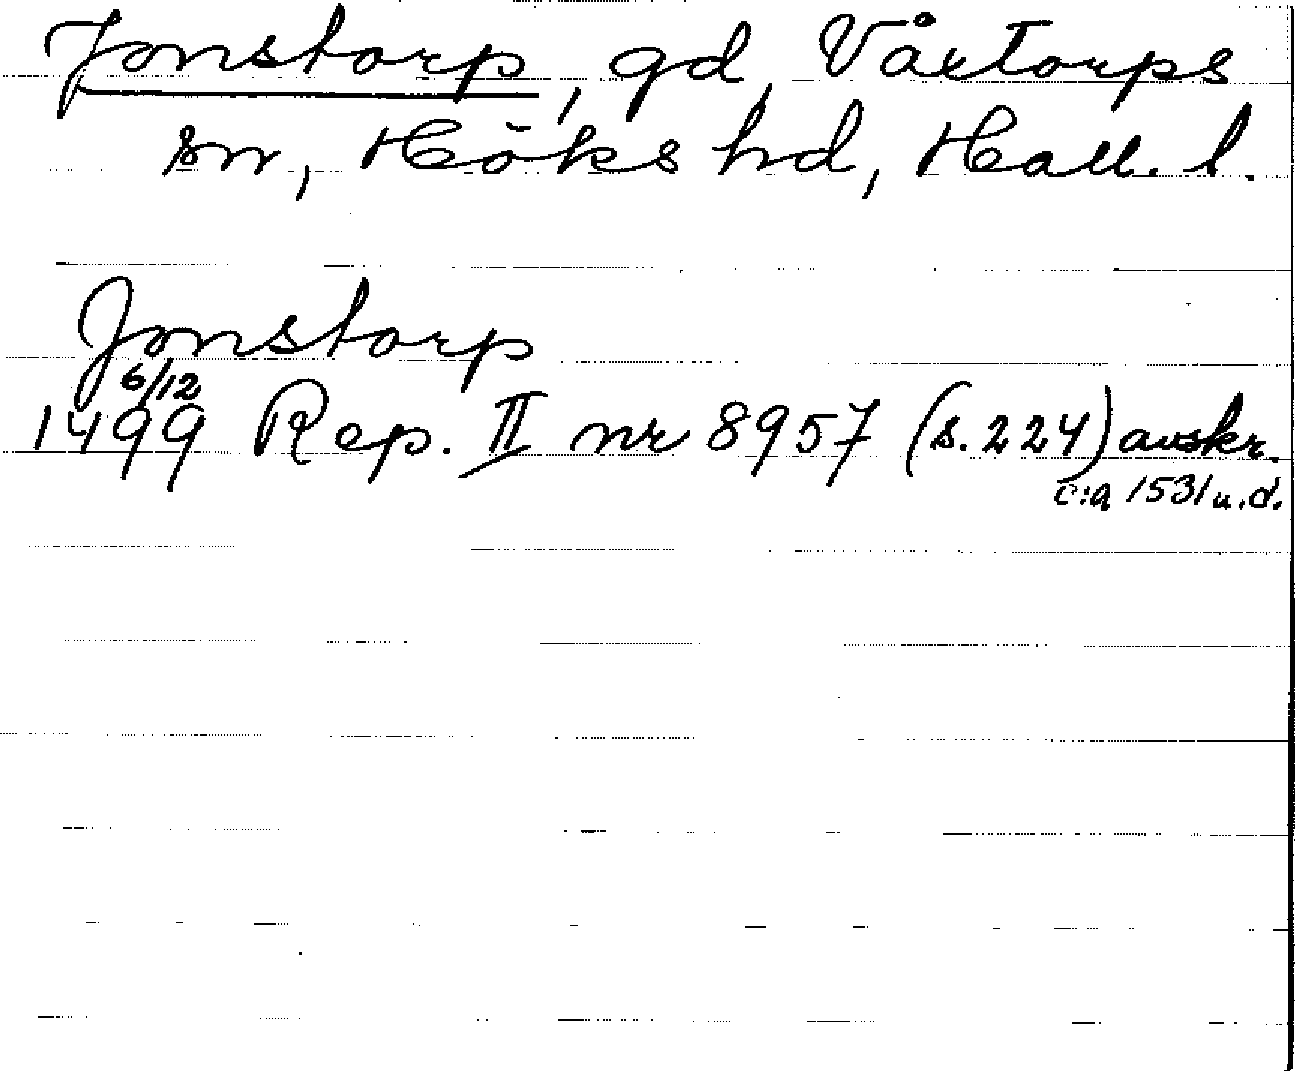 Jonstorp, gd, Våxtorps
sn, Höks hd, Hall. l.
Jonstorp
6/12
1499 Rep. II nr 8957 (s. 224) avskr.
c:a 1531 u.d.